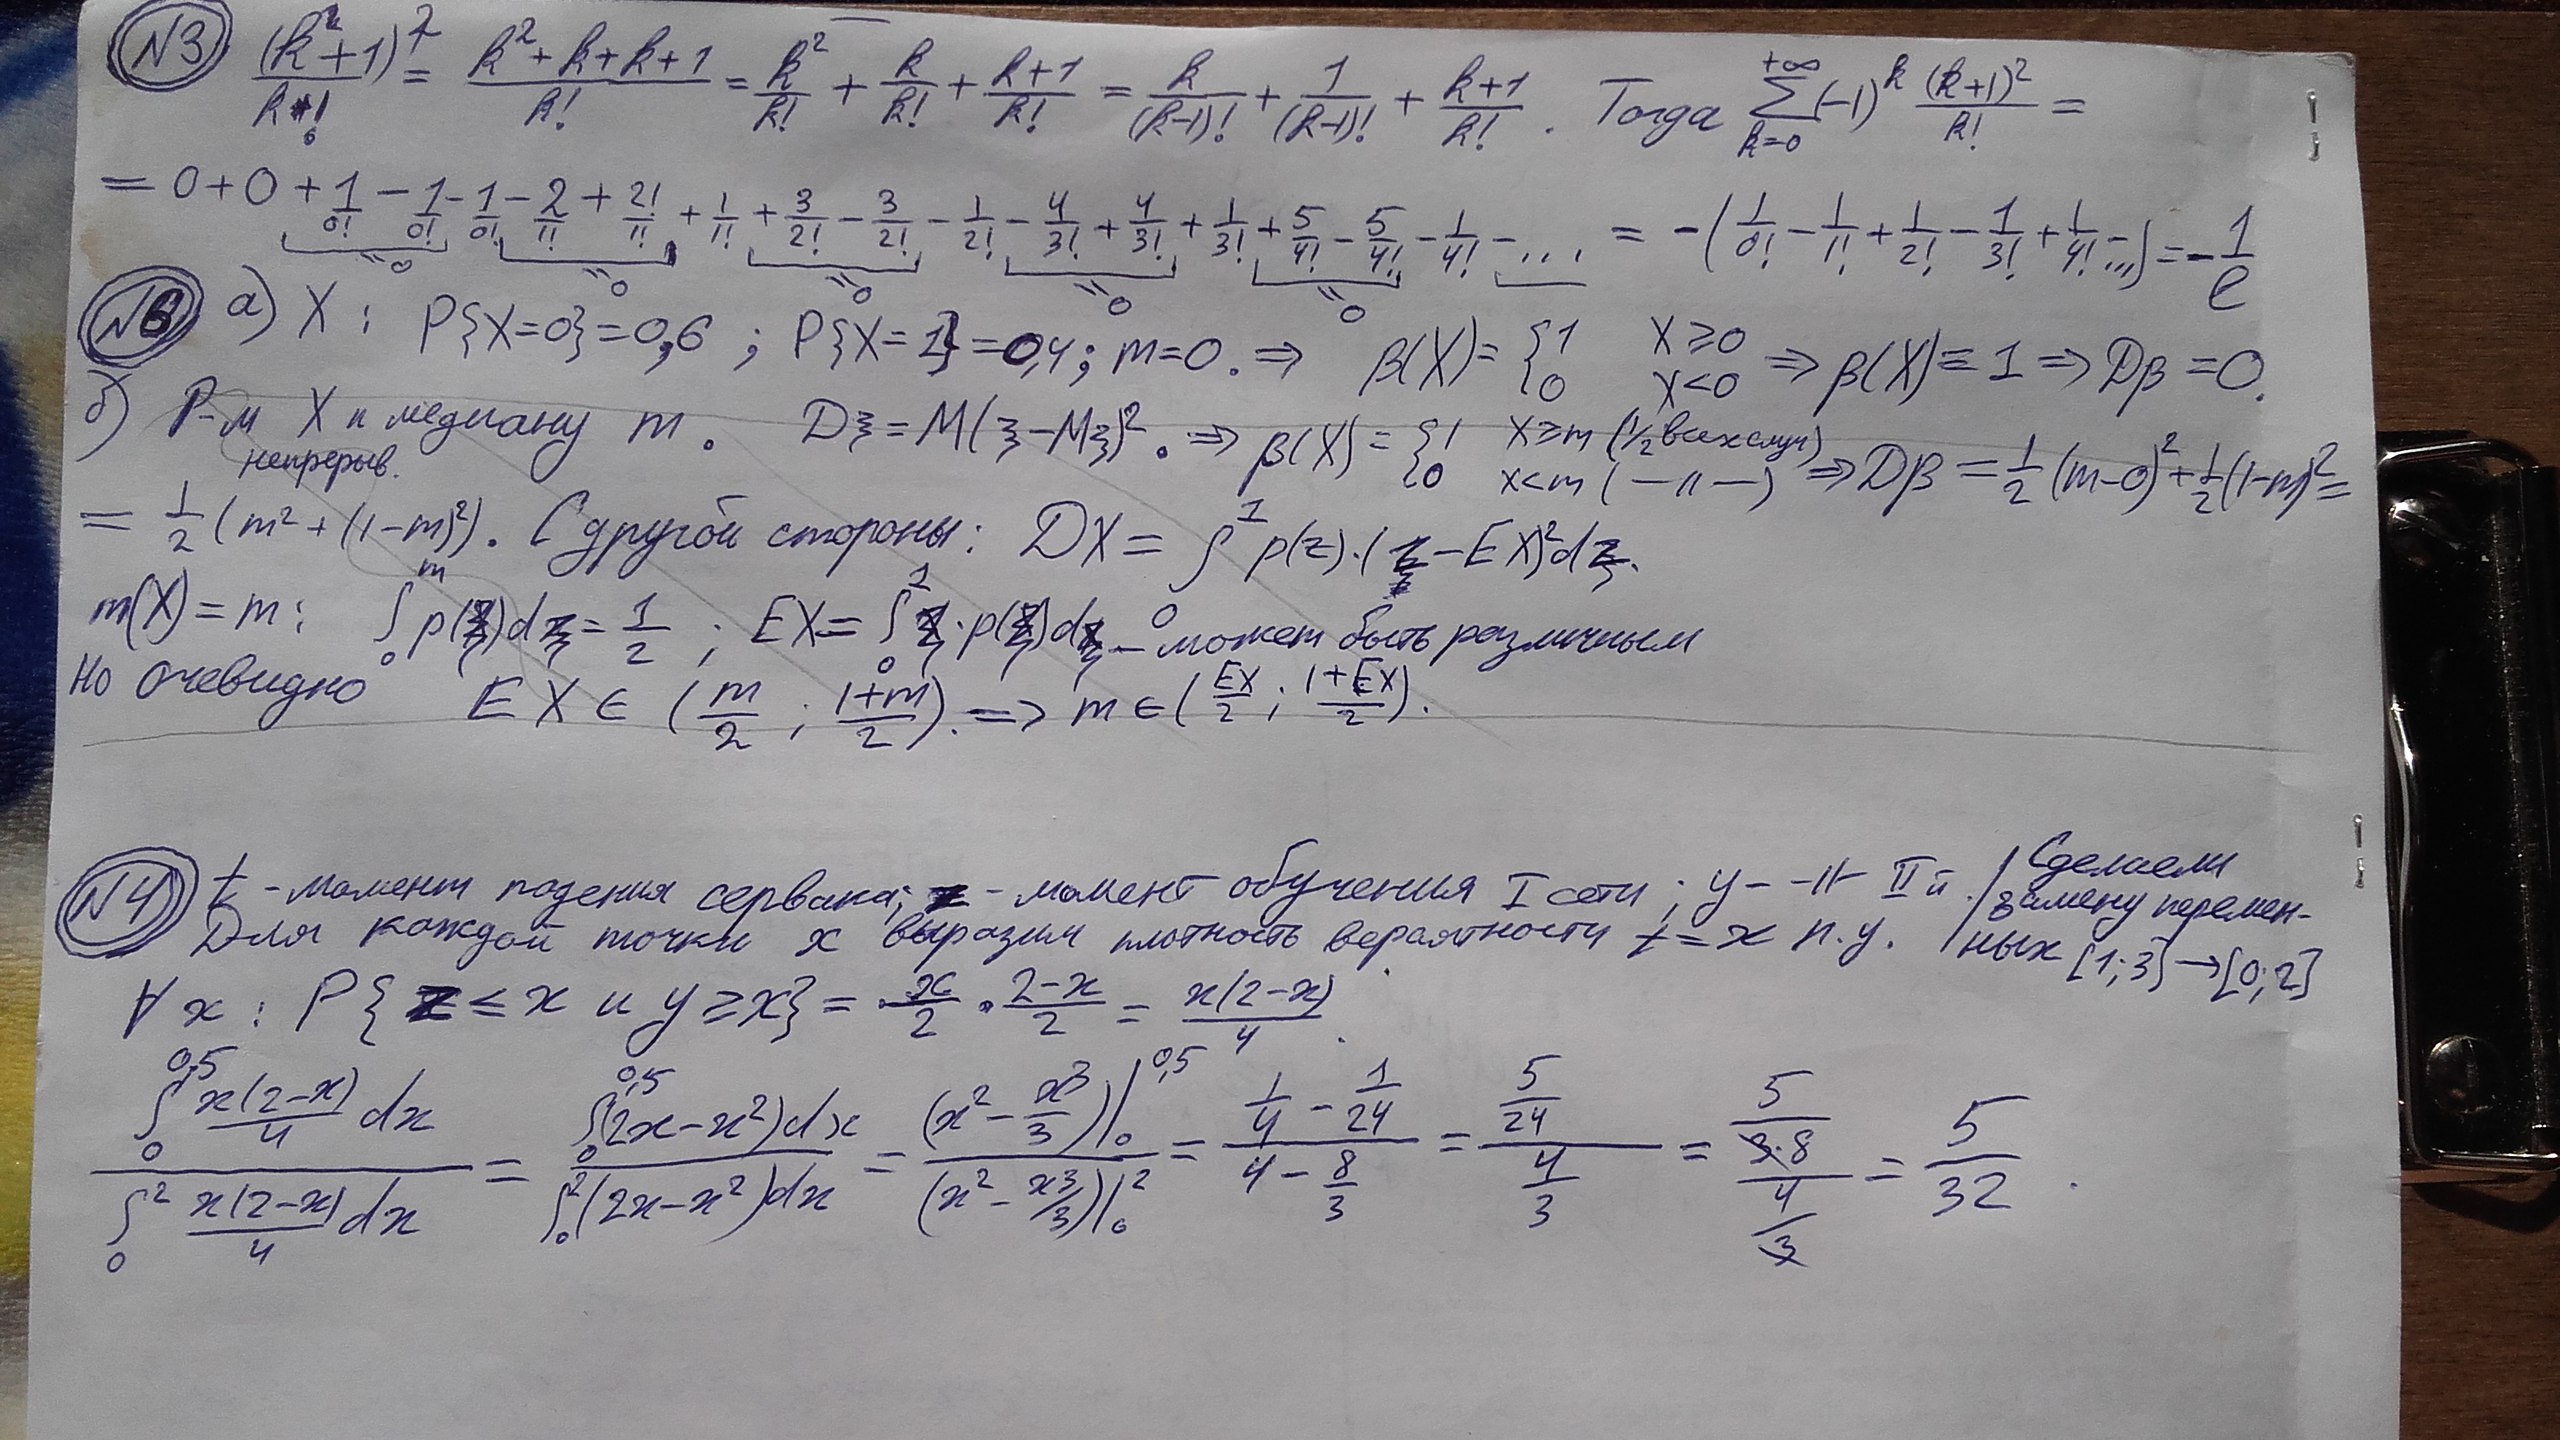 N3 (k+1)²/k! = k²+k+k+1/k! = k²/k! + k/k! + k+1/k! = k/(k-1)! + 1/(k-1)! + k+1/k! . Тогда +∞ Σ k=0 (-1)^k (k+1)²/k! =
= 0+0 + 1/0! - 1/0! - 1/0! - 2/1! + 2!/1! + 1/1! + 3/2! - 3/2! - 1/2! - 4/3! + 4/3! + 1/3! + 5/4! - 5/4! - 1/4! - ... = -(1/0! - 1/1! + 1/2! - 1/3! + 1/4! - ...) = -1/e
"0 "0 "0 "0 "0
N6 а) X : P{X=0}=0,6 ; P{X=1}=0,4; m=0. ⇒ β(X) = { 1 X≥0 0 X<0 ⇒ β(X) ≡ 1 ⇒ Dβ = 0.
б) Р-м X и медиану m. Dξ = M(ξ-Mξ)². ⇒ β(X) = { 1 X≥m (1/2 всех случ) 0 x<m (—II—) ⇒ Dβ = 1/2 (m-0)² + 1/2 (1-m)² =
непрерыв.
= 1/2 (m² + (1-m)²). С другой стороны: DX = ∫₀¹ p(z)·(z-EX)²dz.
m(X) = m: ∫₀ᵐ p(z)dz = 1/2 ; EX = ∫₀¹ z·p(z)dz - может быть различным
Но очевидно EX ∈ (m/2 ; 1+m/2). ⇒ m ∈ (EX/2 ; 1+EX/2).
N4 t - момент падения сервака; z - момент обучения I сети; y - -II- II й. / Сделаем
Для каждой точки x выразим плотность вероятности t = x п.у. / замену перемен-
ных [1;3] → [0;2]
∀ x : P{z ≤ x и y ≥ x} = x/2 · 2-x/2 = x(2-x)/4 .
∫₀^0,5 x(2-x)/4 dx / ∫₀² x(2-x)/4 dx = ∫₀^0,5 (2x-x²)dx / ∫₀² (2x-x²)dx = (x² - x³/3)|₀^0,5 / (x² - x³/3)|₀² = 1/4 - 1/24 / 4 - 8/3 = 5/24 / 4/3 = 5/3·8 / 4/3 = 5/32 .